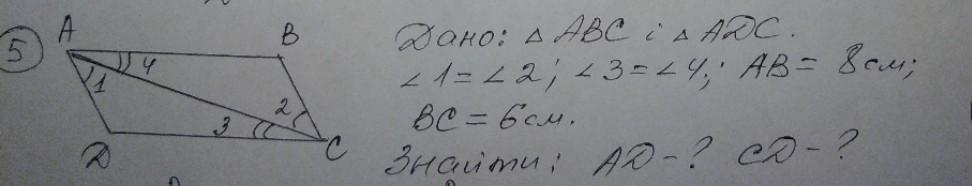 5
A B
1 4
2
3
D C
Дано: △ ABC і △ ADC.
∠1=∠2; ∠3=∠4; AB = 8 см;
BC = 6 см.
Знайти: AD-? CD-?